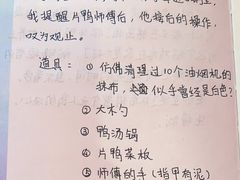 我提醒片鸭师傅后，他接白的操作，
叹为观止。
道具：① 仿佛清理过10个油烟机的
抹布，似乎曾经是白色？
② 大木勺
③ 鸭汤锅
④ 片鸭菜板
⑤ 师傅的手（指甲有泥）